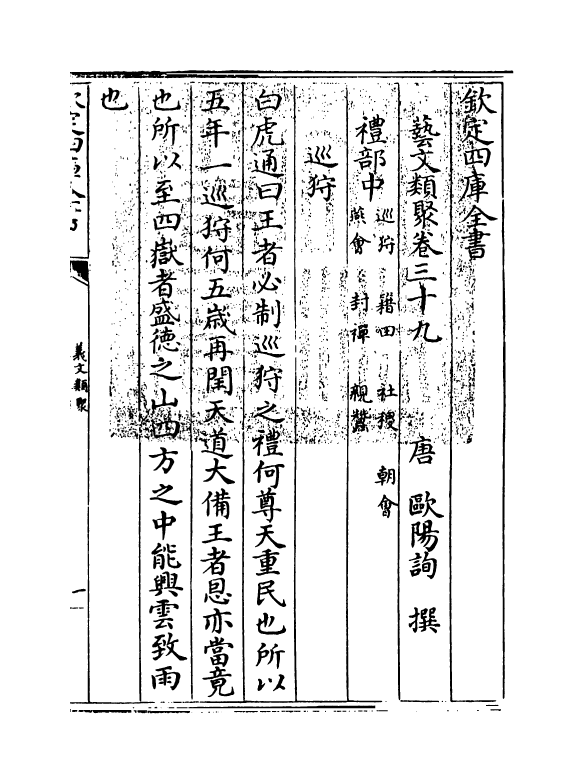 欽定四庫全書
藝文類聚卷三十九
唐 歐陽詢 撰
禮部中 巡狩 籍田 社稷 朝會
燕會 封禪 親蠶
巡狩
白虎通曰王者必制巡狩之禮何尊天重民也所以
五年一巡狩何五歲再閏天道大備王者恩亦當竟
也所以至四嶽者盛德之山四方之中能興雲致雨
也
欽定四庫全書
藝文類聚
一